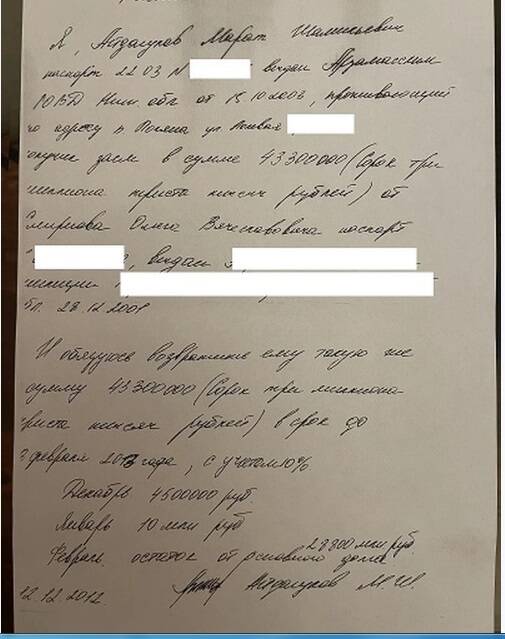 Я, Айдалуков Марат Шамильевич
паспорт 22 03 N выдан Арзамасским
РОВД Ниж. обл от 13.10.2003, проживающий
по адресу п. ул
получил заем в сумме 43300000 (Сорок три
миллиона триста тысяч рублей) от
Смирнова Олега Вячеславовича паспорт
выдан
милиции
28.12.2001
И обязуюсь возвратить ему такую же
сумму 43300000 (Сорок три миллиона
триста тысяч рублей) в срок до
февраля 2013 года, с учетом 10%.
Декабрь 4500000 руб
Январь 10 млн руб
28 800 млн. руб
Февраль. остаток от основного долга
12.12.2012. Айдалуков М.Ш.